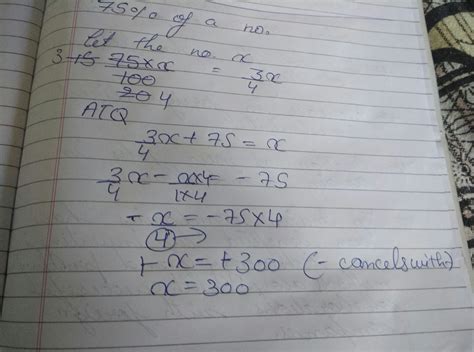 75% of a no.
Let the no. x
3 15 75×x/100 = 3/4 x
20 4
ATQ
3/4 x + 75 = x
3/4 x - x×4/1×4 = -75
- x = -75×4
4 →
+ x = +300 (- cancels with)
x = 300